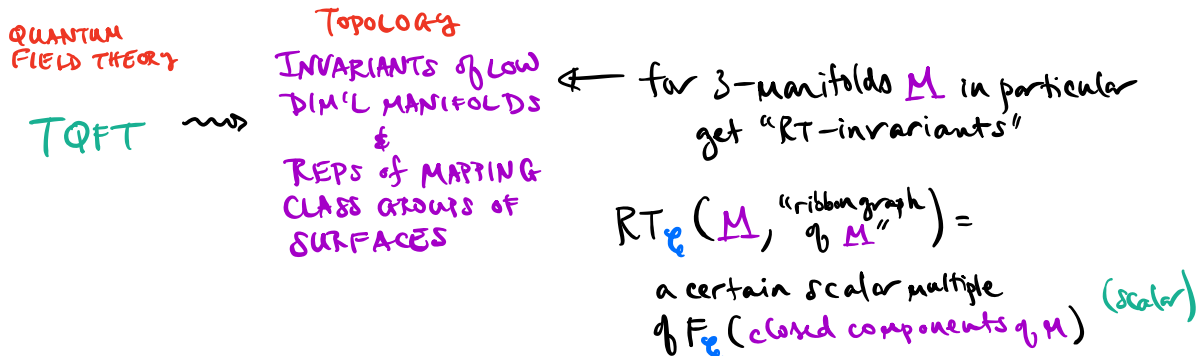 QUANTUM
FIELD THEORY
TQFT
TOPOLOGY
INVARIANTS of LOW
DIM'L MANIFOLDS
&
REPS of MAPPING
CLASS GROUPS OF
SURFACES
for 3-manifolds M in particular
get "RT-invariants"
RT_𝒞 (M, "ribbon graph of M") =
a certain scalar multiple
of F_𝒞 (closed components of M) (scalar)